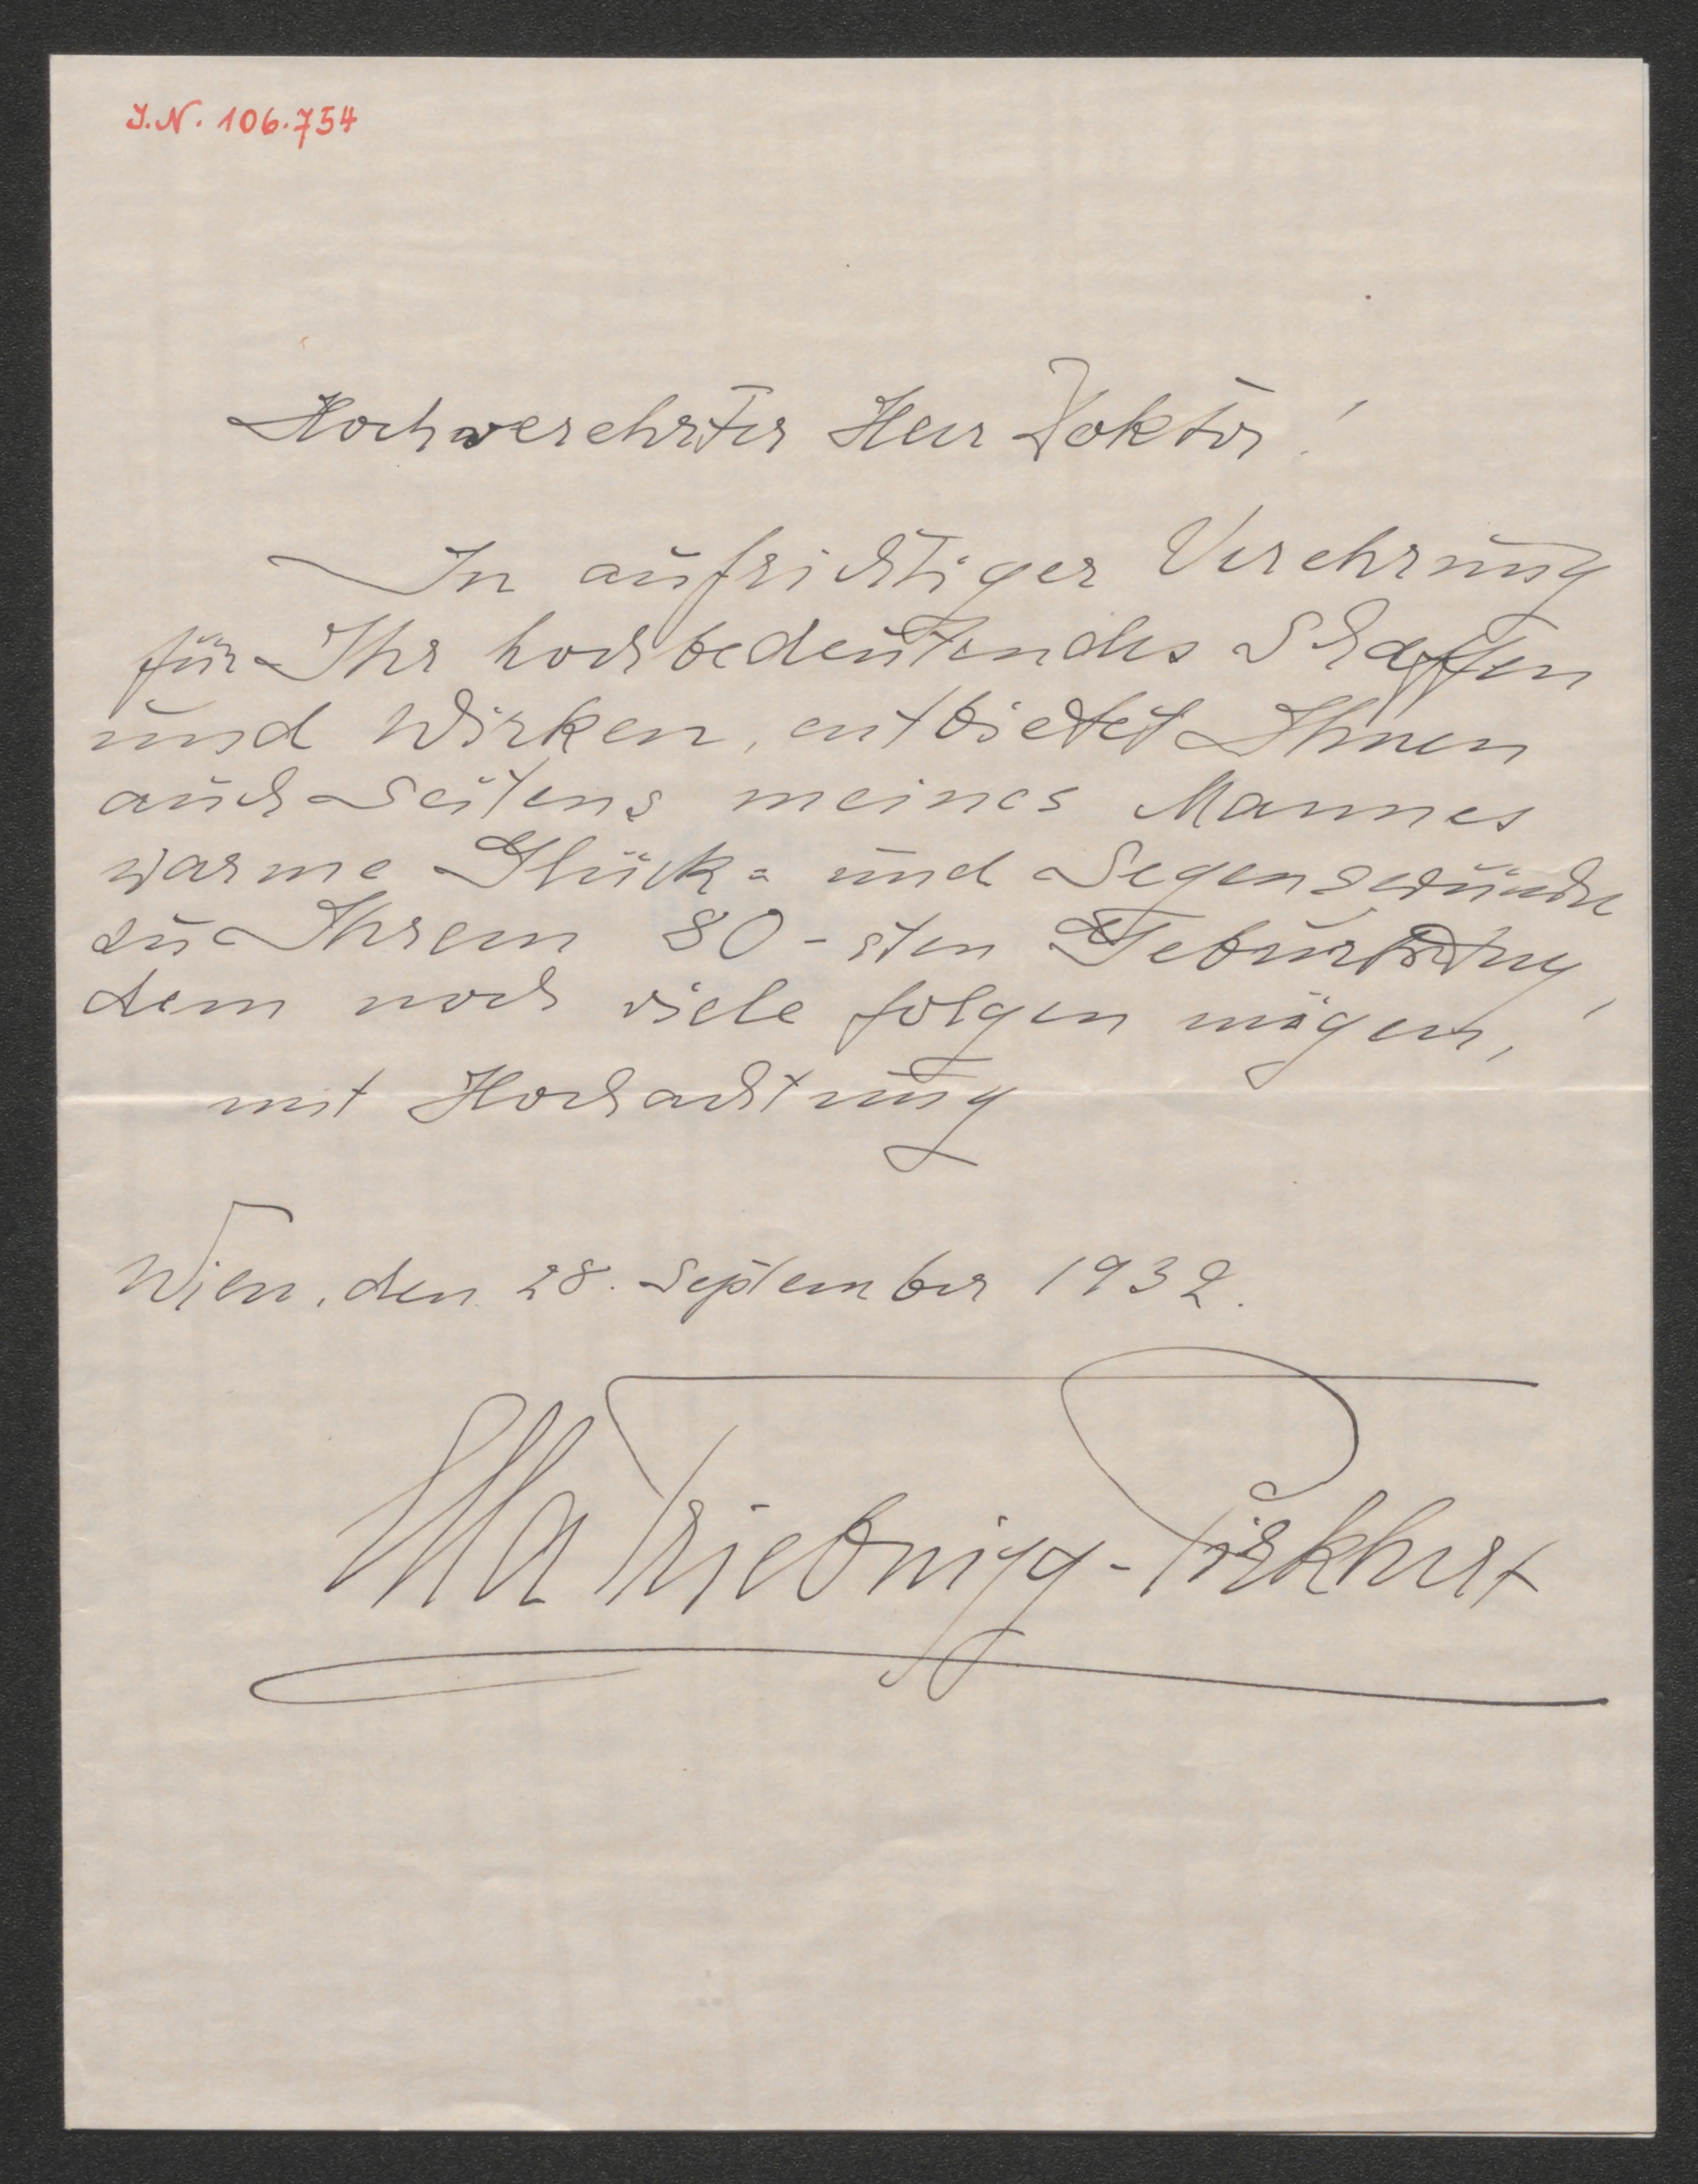 J.N. 106.754
Hochverehrter Herr Doktor!
In aufrichtiger Verehrung
für Ihr hochbedeutendes Schaffen
und Wirken, entbietet Ihnen
auch seitens meines Mannes
warme Glück= und Segenswünsche
zu Ihrem 80-sten Geburtstag,
dem noch viele folgen mögen,
mit Hochachtung
Wien, den 28. September 1932.
Ella Triebnigg-Pirkhert